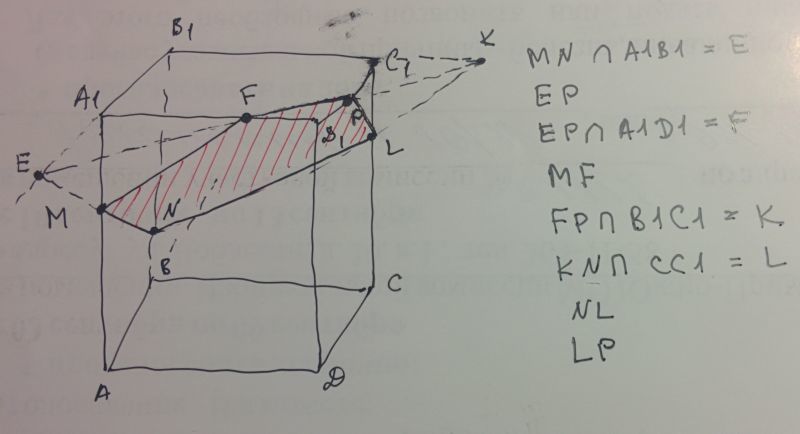 B1
C1
K
A1
F
P
D1
L
E
M
N
B
C
A
D
MN ∩ A1B1 = E
EP
EP ∩ A1D1 = F
MF
FP ∩ B1C1 = K
KN ∩ CC1 = L
NL
LP